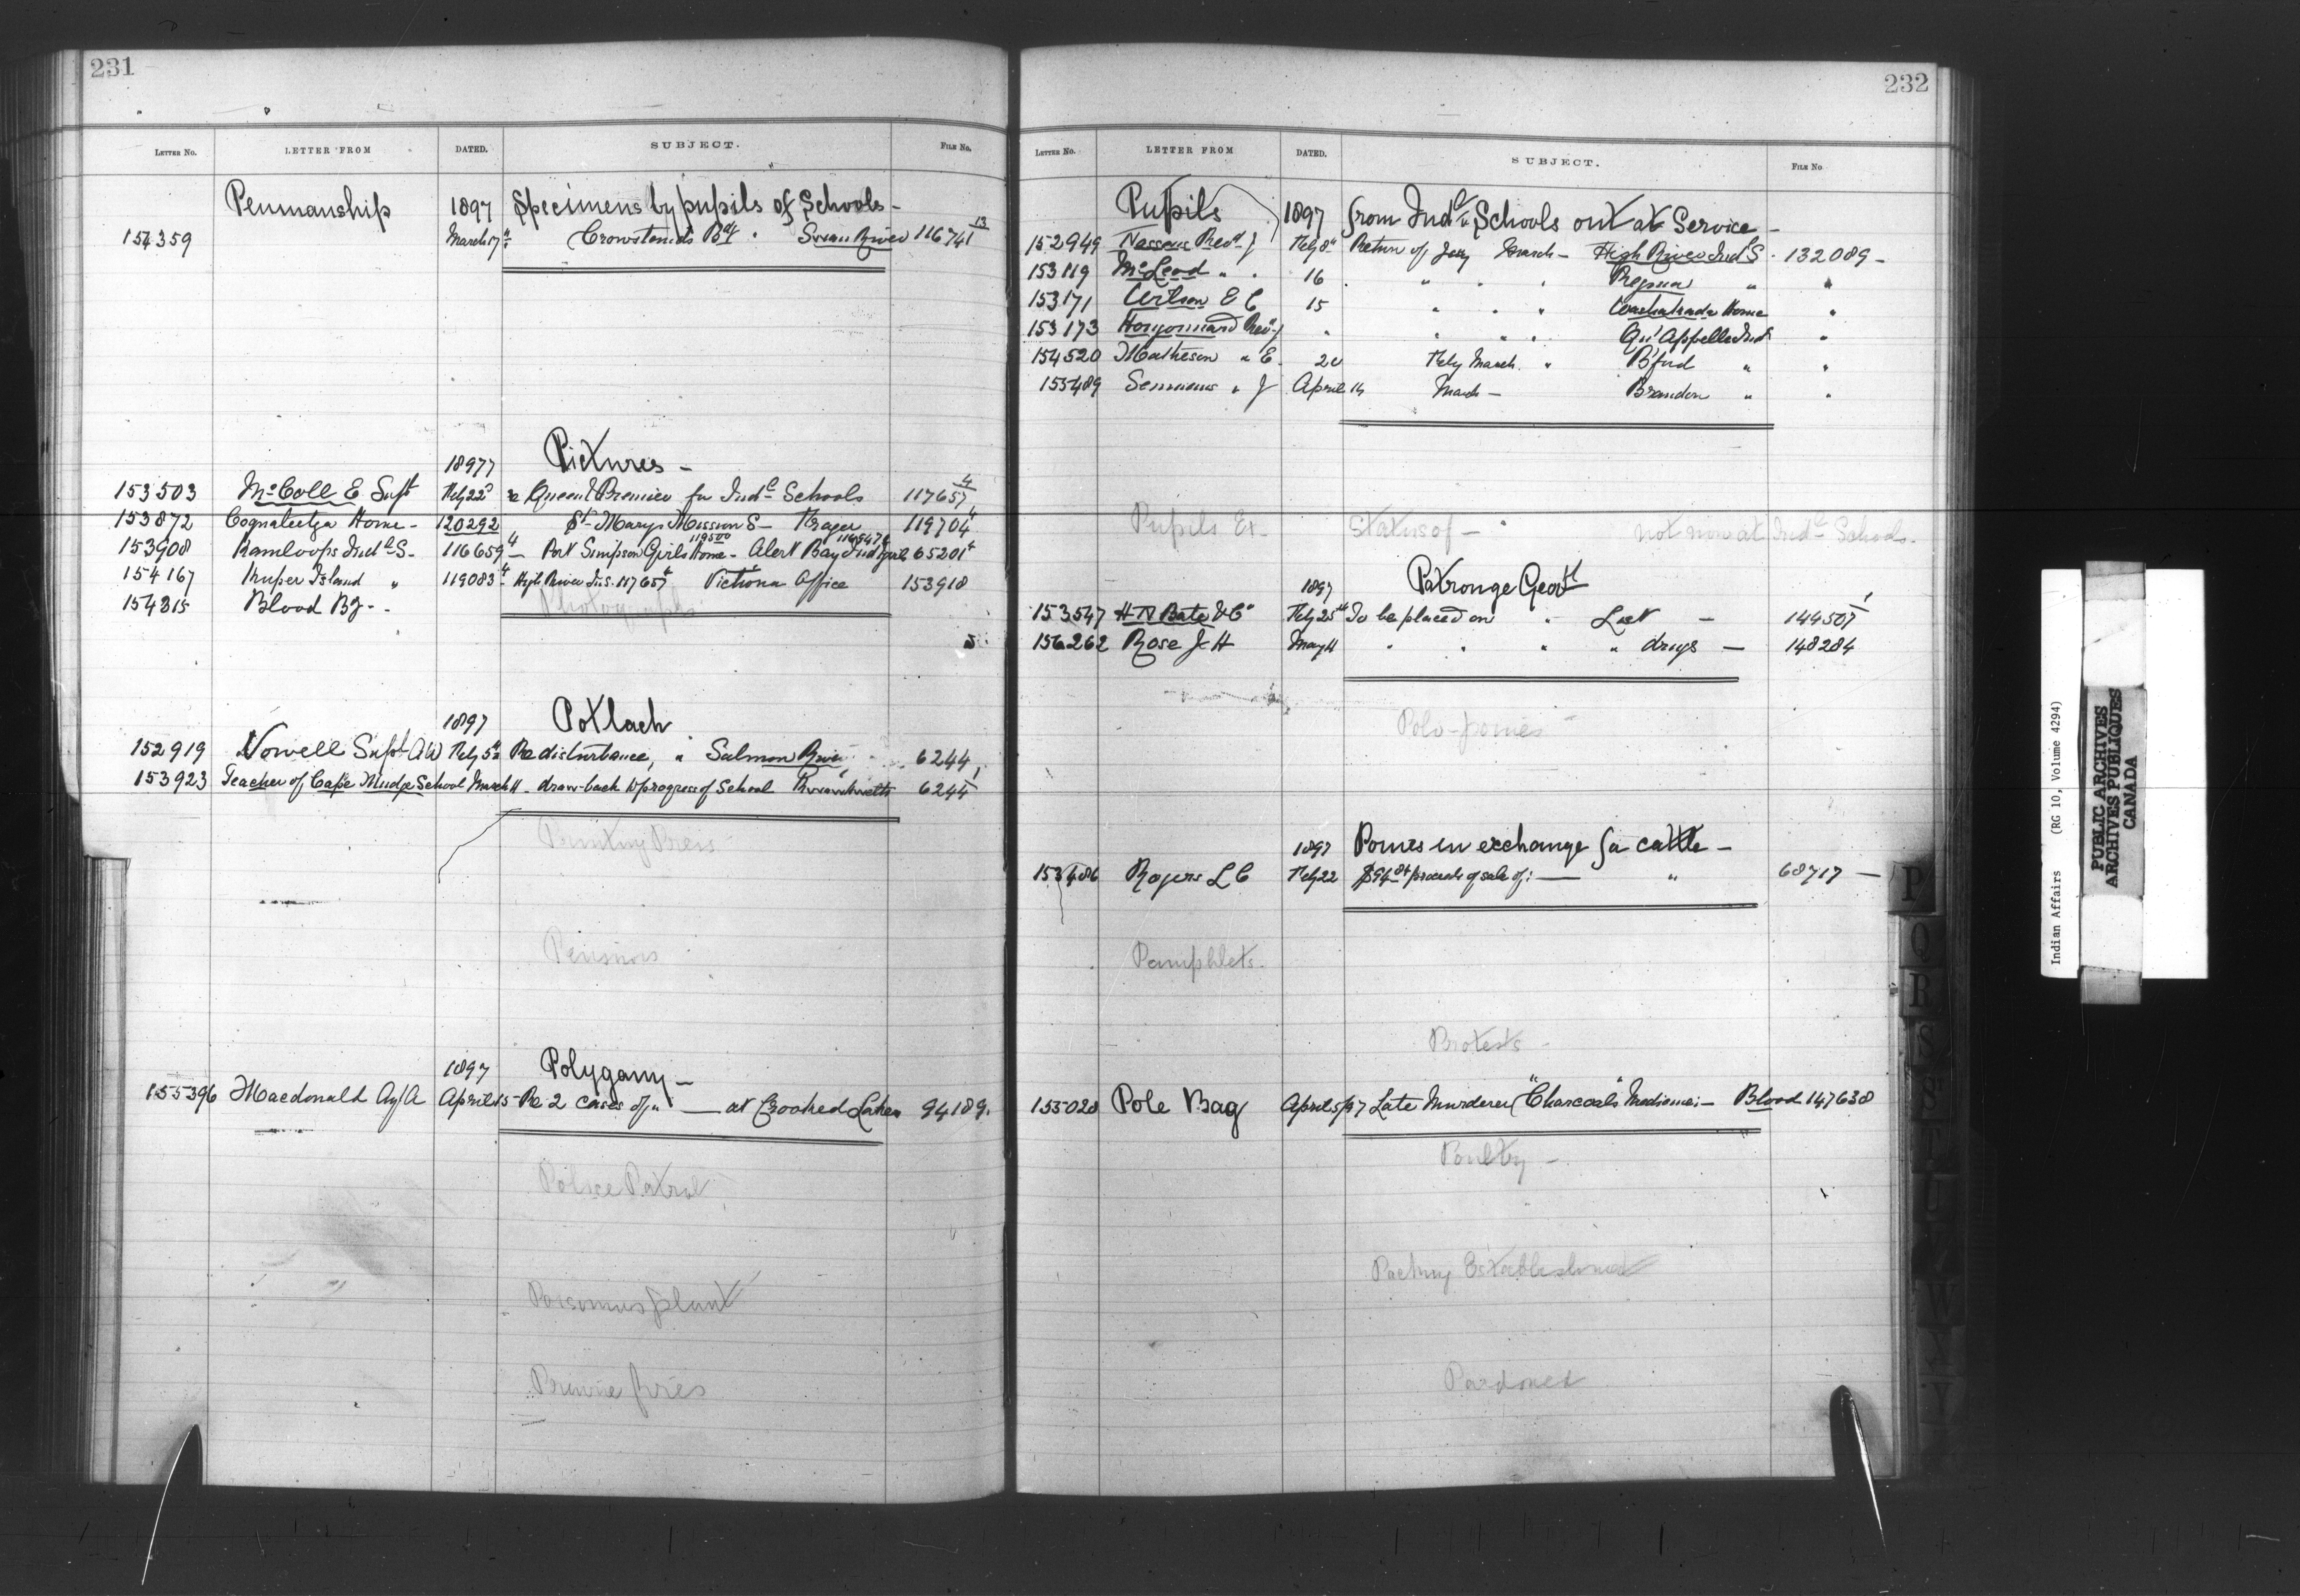 231
LETTER No. LETTER FROM DATED. SUBJECT. FILE No.
Penmanship 1897 Specimens by pupils of Schools -
154359 March 17th Crowstand's Bdg " Swan River 116741 13
1897 Pictures -
153503 McColl E Supt Feby 22d re Queen & Premier for Indl Schools 117657 4
153872 Coqualeetza Home - 120292 St Marys Mission S - Fraser 119704 4
153908 Kamloops Indl S - 116659 4 - Port Simpson Girls Home 119500 - Alert Bay Ind girls 65201 4
154167 Kuper Island " 119083 4 High River I.S. 117657 4 Victoria Office 153918
154315 Blood Bg - -
Photographs
1897 Potlach
152919 Vowell Supt AW Feby 5th Re disturbance, " Salmon River 6244
153923 Teacher of Cape Mudge School March 11 - draw-back to progress of School 6244 1
Printing Press
Pensions
1897 Polygamy -
155396 Macdonald Ag A April 15 - Re 2 cases of " — at Crooked Lakes 94189.
Police Patrol
Poisonous plant
Prairie fires
232
LETTER No. LETTER FROM DATED. SUBJECT. FILE No
Pupils 1897 from Indl Schools out at Service -
152949 Revd J Feby 8th Return of Jany branch - High River Indl S. 132089 -
153119 McLeod " " 16 " " " Regina " "
153171 E C 15 " " " Home "
153173 Hugonnard Revd J " " " " Qu'Appelle Indl "
154520 Matheson " E. 20 Feby March " B'ford " "
155489 Semmens " J April 14 March - Brandon " "
Pupils Ex - Status of - not now at Indl Schools -
1897 Patronge Govt
153547 H N Bate & Co Feby 25th To be placed on " List - 144507 1
156262 Rose J H May 11 " " " " drugs - 148284
Polo-ponies -
1897 Ponies in exchange for cattle -
153486 Rogers L C Feby 22 $94.84 proceeds of sale of: — " 68717 -
Pamphlets.
Protests -
155028 Pole Bag April 5/97 Late Murderer "Charcoal's" Medicine - Blood 147638
Poultry -
Packing Establishment
Pardoned
P
Q
R
S
T
U
W
Y
Indian Affairs (RG 10, Volume 4294)
PUBLIC ARCHIVES
ARCHIVES PUBLIQUES
CANADA